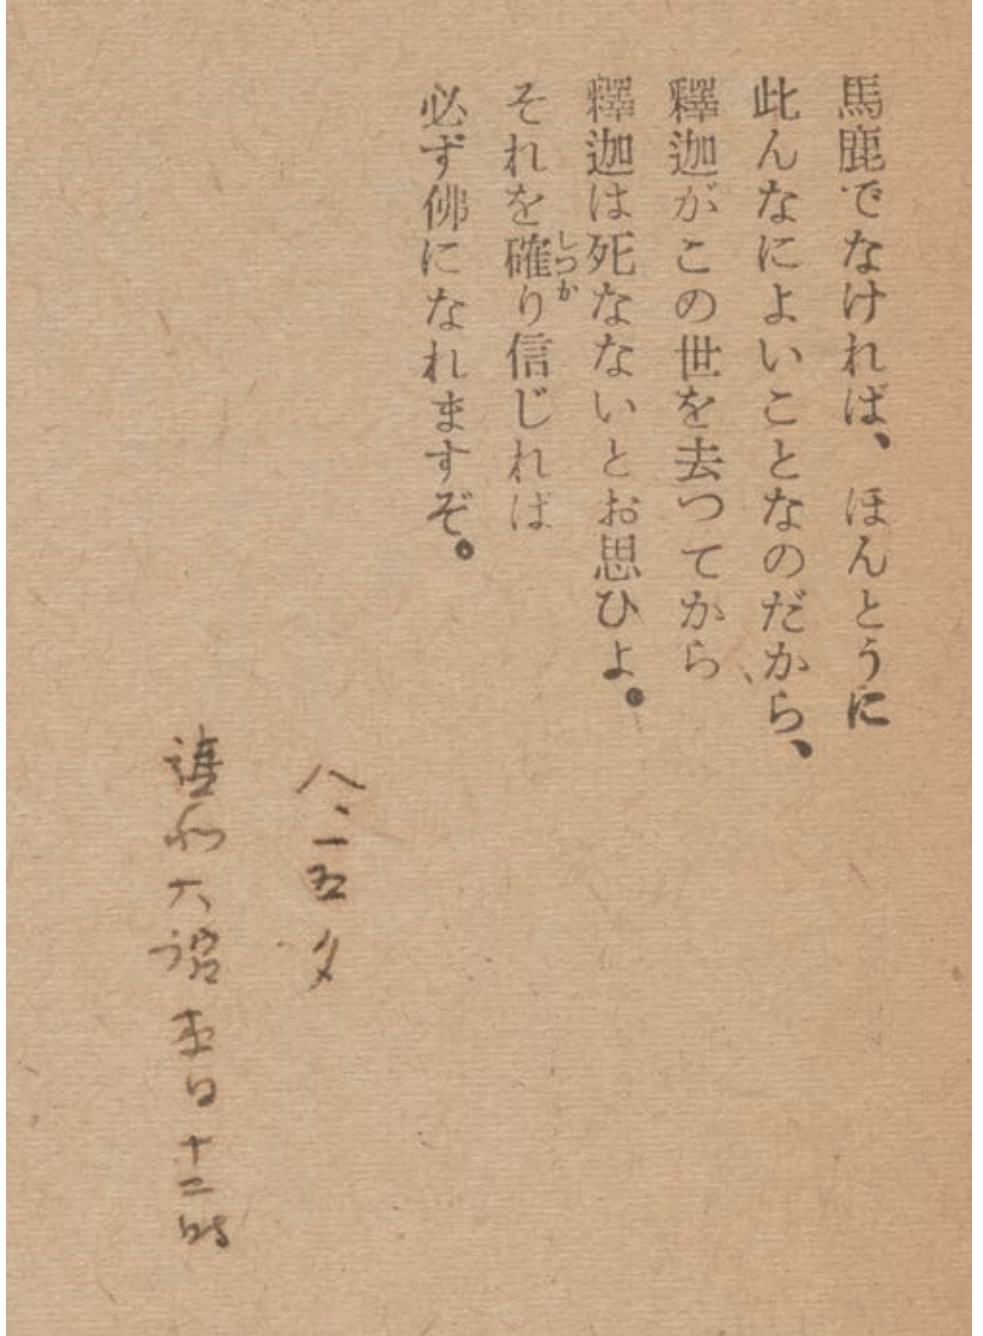 馬鹿でなければ、ほんとうに
此んなによいことなのだから、
釋迦がこの世を去つてから
釋迦は死なないとお思ひよ。
しつか
それを確り信じれば
必ず佛になれますぞ。
八、一五夕
講和大詔本日十二時